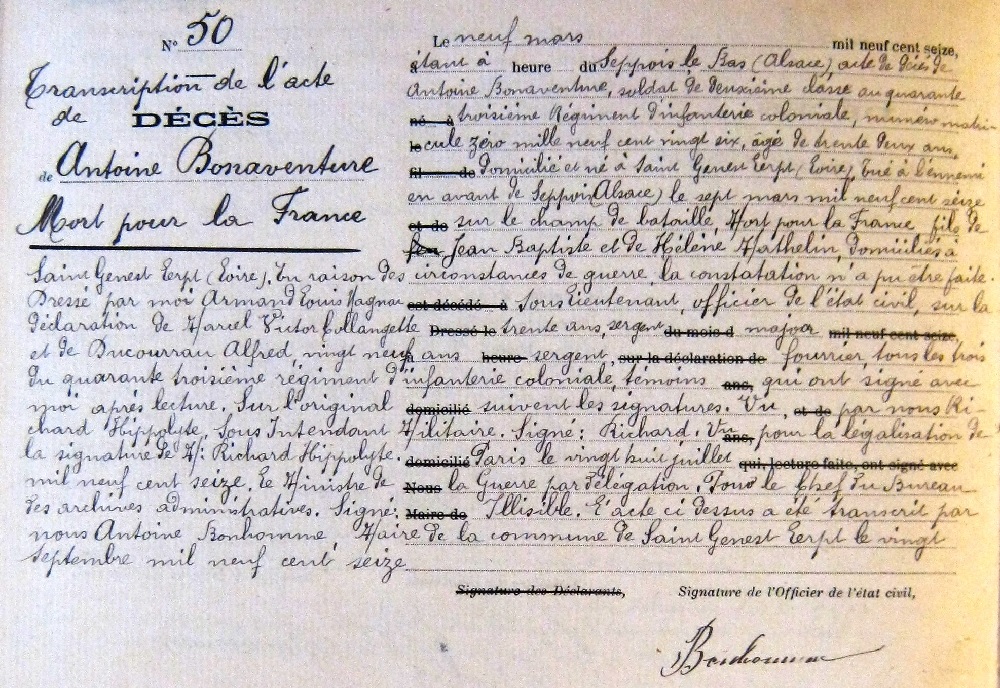 N° 50
Transcription de l'acte
de DÉCÈS
de Antoine Bonaventure
Mort pour la France
Le neuf mars mil neuf cent seize,
étant à heure du Seppois le Bas (Alsace) acte de décès de
Antoine Bonaventure, soldat de deuxième classe au quarante
né à troisième Régiment d'infanterie coloniale, numéro matri-
le cule zéro mille neuf cent vingt six, âgé de trente deux ans,
fil de Domicilié et né à Saint Genest Lerpt (Loire), tué à l'ennemi
en avant de Seppois (Alsace) le sept mars mil neuf cent seize
et de sur le champ de bataille, Mort pour la France fils de
Jean Baptiste et de Hélène Mathelin, domiciliés à
Saint Genest Lerpt (Loire). En raison des circonstances de guerre, la constatation n'a pu être faite.
Dressé par moi Armand Louis Magnau est décédé à Sous Lieutenant, officier de l'état civil, sur la
déclaration de Marcel Victor Collangette Dressé le trente ans, sergent du mois d major mil neuf cent seize,
et de Ducourrau Alfred, vingt neuf à ans heure sergent, sur la déclaration de fourrier, tous les trois
du quarante troisième régiment d'infanterie coloniale, témoins ans, qui ont signé avec
moi après lecture. Sur l'original domicilié suivent les signatures. Vu, et de par nous Ri-
chard Hippolyte, Sous Intendant Militaire. Signé: Richard. Vu ans, pour la légalisation de
la signature de M: Richard Hippolyte. domicilié Paris le vingt huit juillet qui, lecture faite, ont signé avec
mil neuf cent seize, Le Ministre de Nous la Guerre par délégation. Pour le Chef du Bureau
des archives administratives. Signé: Maire de Illisible. L'acte ci dessus a été transcrit par
nous Antoine Bonhomme, Maire de la commune de Saint Genest Lerpt le vingt
septembre mil neuf cent seize
Signature des Déclarants, Signature de l'Officier de l'état civil,
Bonhomme